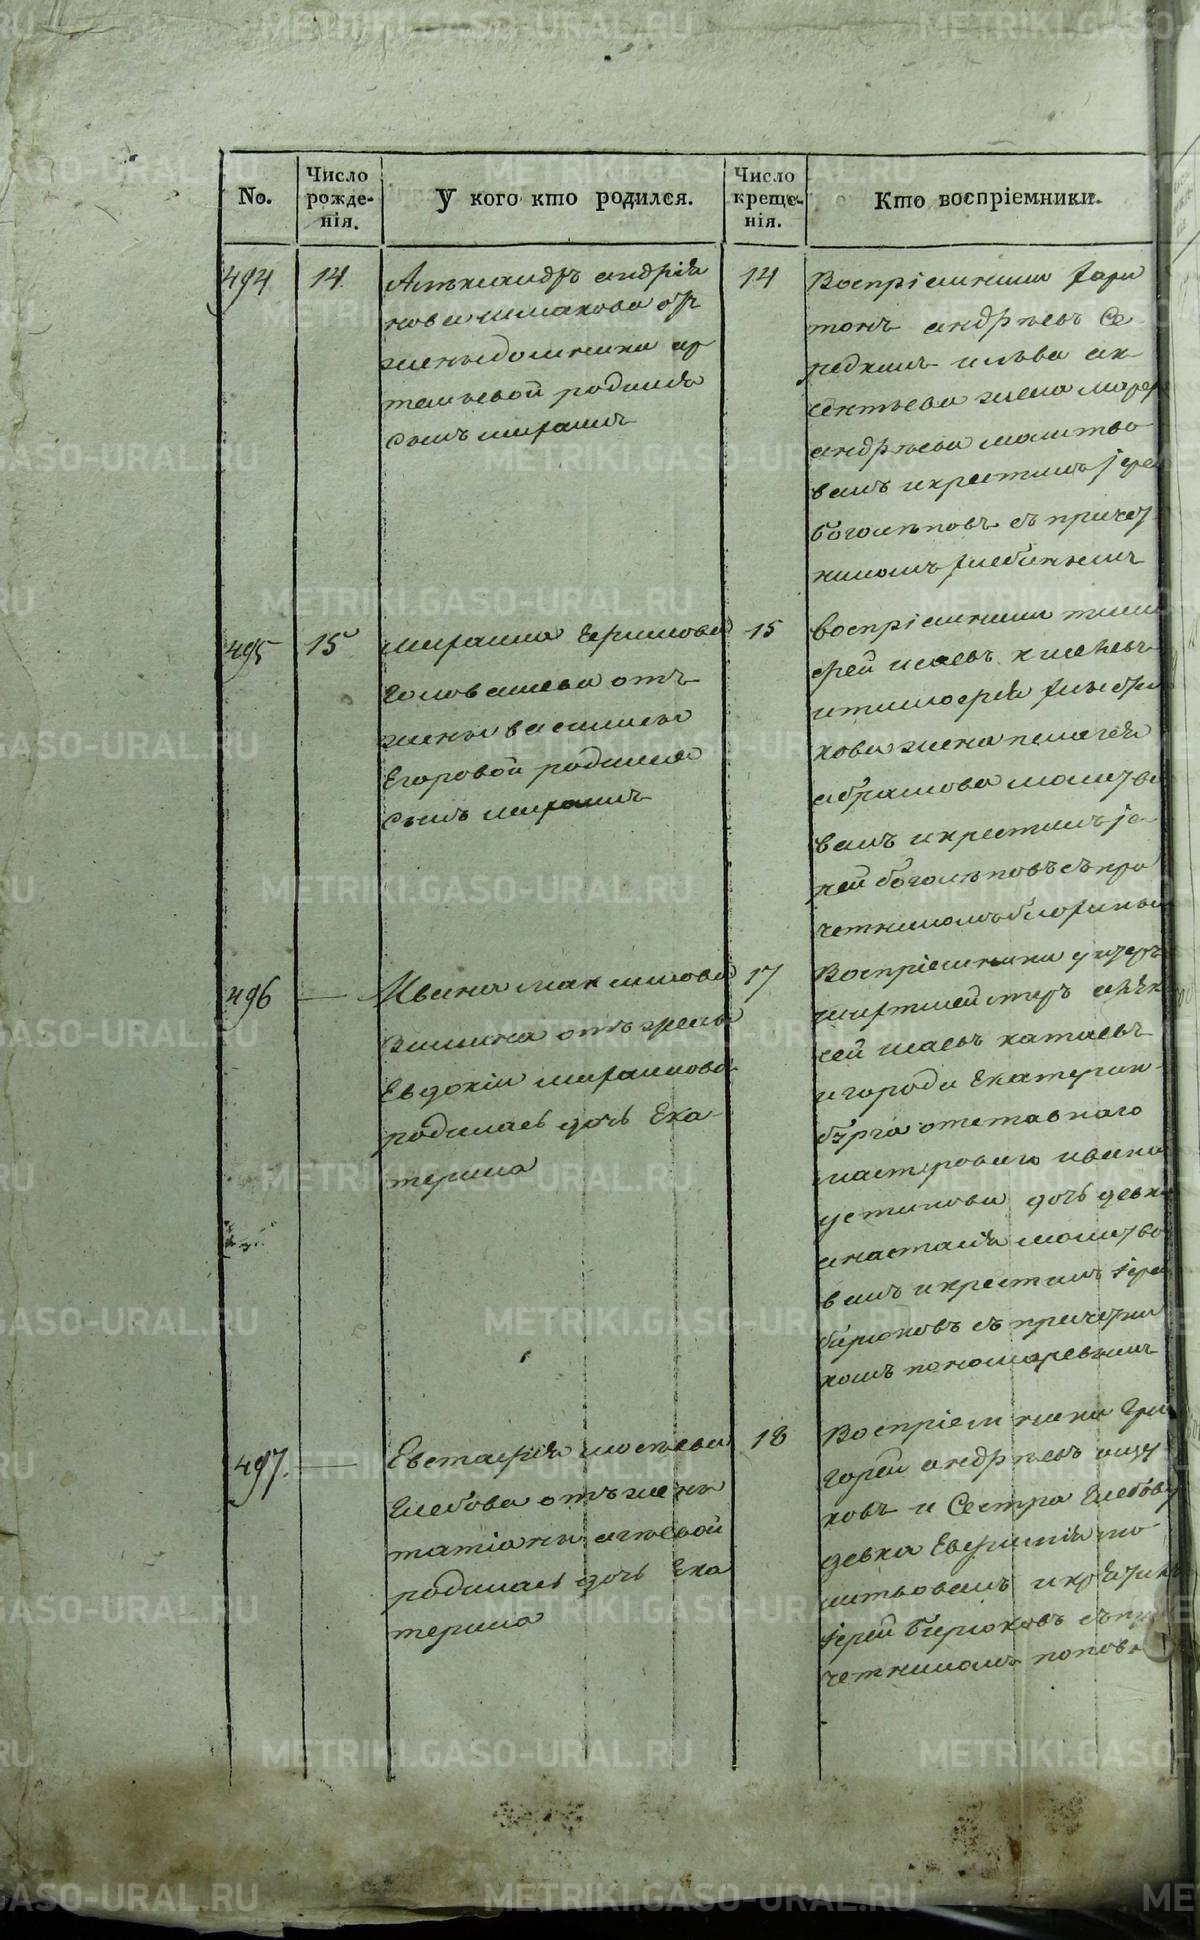 No.
Число рожде-нія.
У кого кто родился.
Число креще-нія.
Кто воспріемники.
494
14
Алѣксандръ андрія
нова шмакова отъ
жены домники ар
темьевой родился
сынъ
14
Воспріемники Хари
тонъ андрѣевъ Се
редкинъ и льва ак
сентьева жена
андрѣева молитво
валъ и крестилъ Іерей
боголѣповъ съ причет
никомъ
495
15
Ефимова
Головачева отъ
жены василисы
Егоровой родился
сынъ
15
воспріемники тимо
фей исаевъ
и тимофея
кова жена пелагея
абрамова молитво
валъ и крестилъ Іе
рей боголѣповъ съ при
четникомъ
496
Ивана максимова
отъ жены
Евдокіи
родилась дочь Ека
терина
17
Воспріемники унтеръ
шихтмейстеръ алѣк
сей исаевъ катаевъ
и города Екатерин
бурга отставнаго
мастероваго ивана
устинова дочь девка
анастасія молитво
валъ и крестилъ Іерей
бирюковъ съ причетни
комъ пономаревымъ
497.
Евстафія мосѣева
Глебова отъ жены
татіаны
родилась дочь Ека
терина
18
Воспріемники Гри
горей андрѣевъ
ковъ и Сестра Глебова
девка Евфимія мо
литвовалъ и крестилъ
Іерей Бирюковъ съ при
четникомъ поповымъ
METRIKI.GASO-URAL.RU